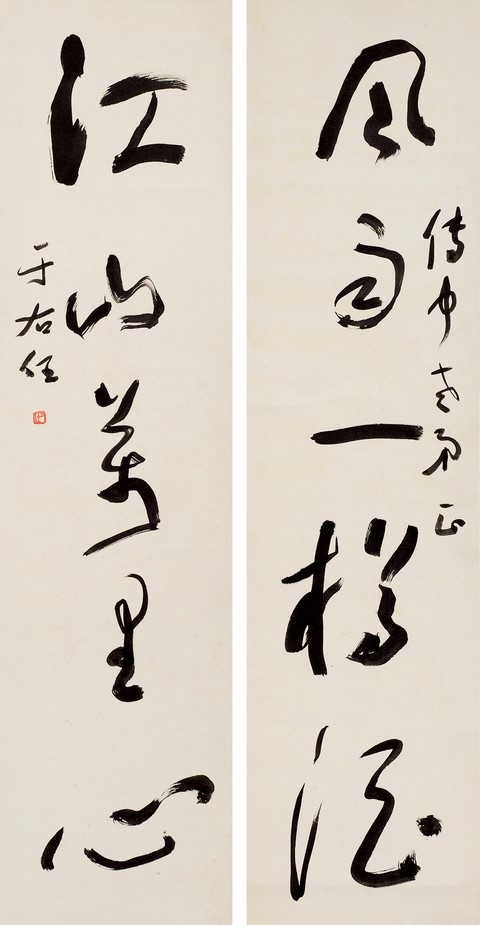 傳中老弟正
風雨一樽酒
江山萬里心
于右任